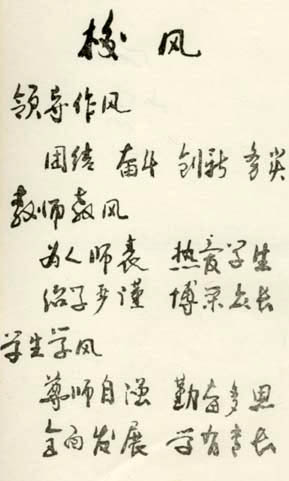 校 风
领导作风
团结 奋斗 创新 务实
教师教风
为人师表 热爱学生
治学严谨 博采众长
学生学风
尊师自强 勤奋多思
全面发展 学有专长